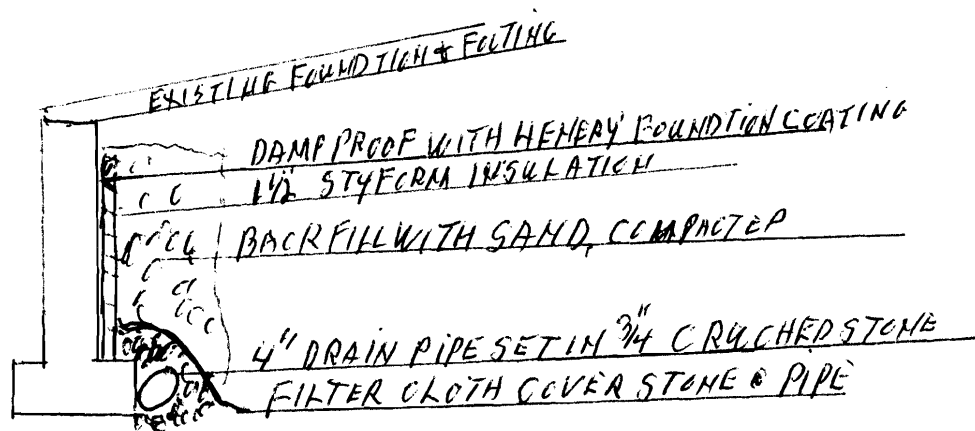 EXISTING FOUNDTION & FOOTING
DAMP PROOF WITH HENERY' FOUNDTION COATING
1 1/2" STYFORM INSULATION
BACKFILL WITH SAND, COMPACTED
4" DRAIN PIPE SET IN 3/4" CRUCHED STONE
FILTER CLOTH COVER STONE & PIPE